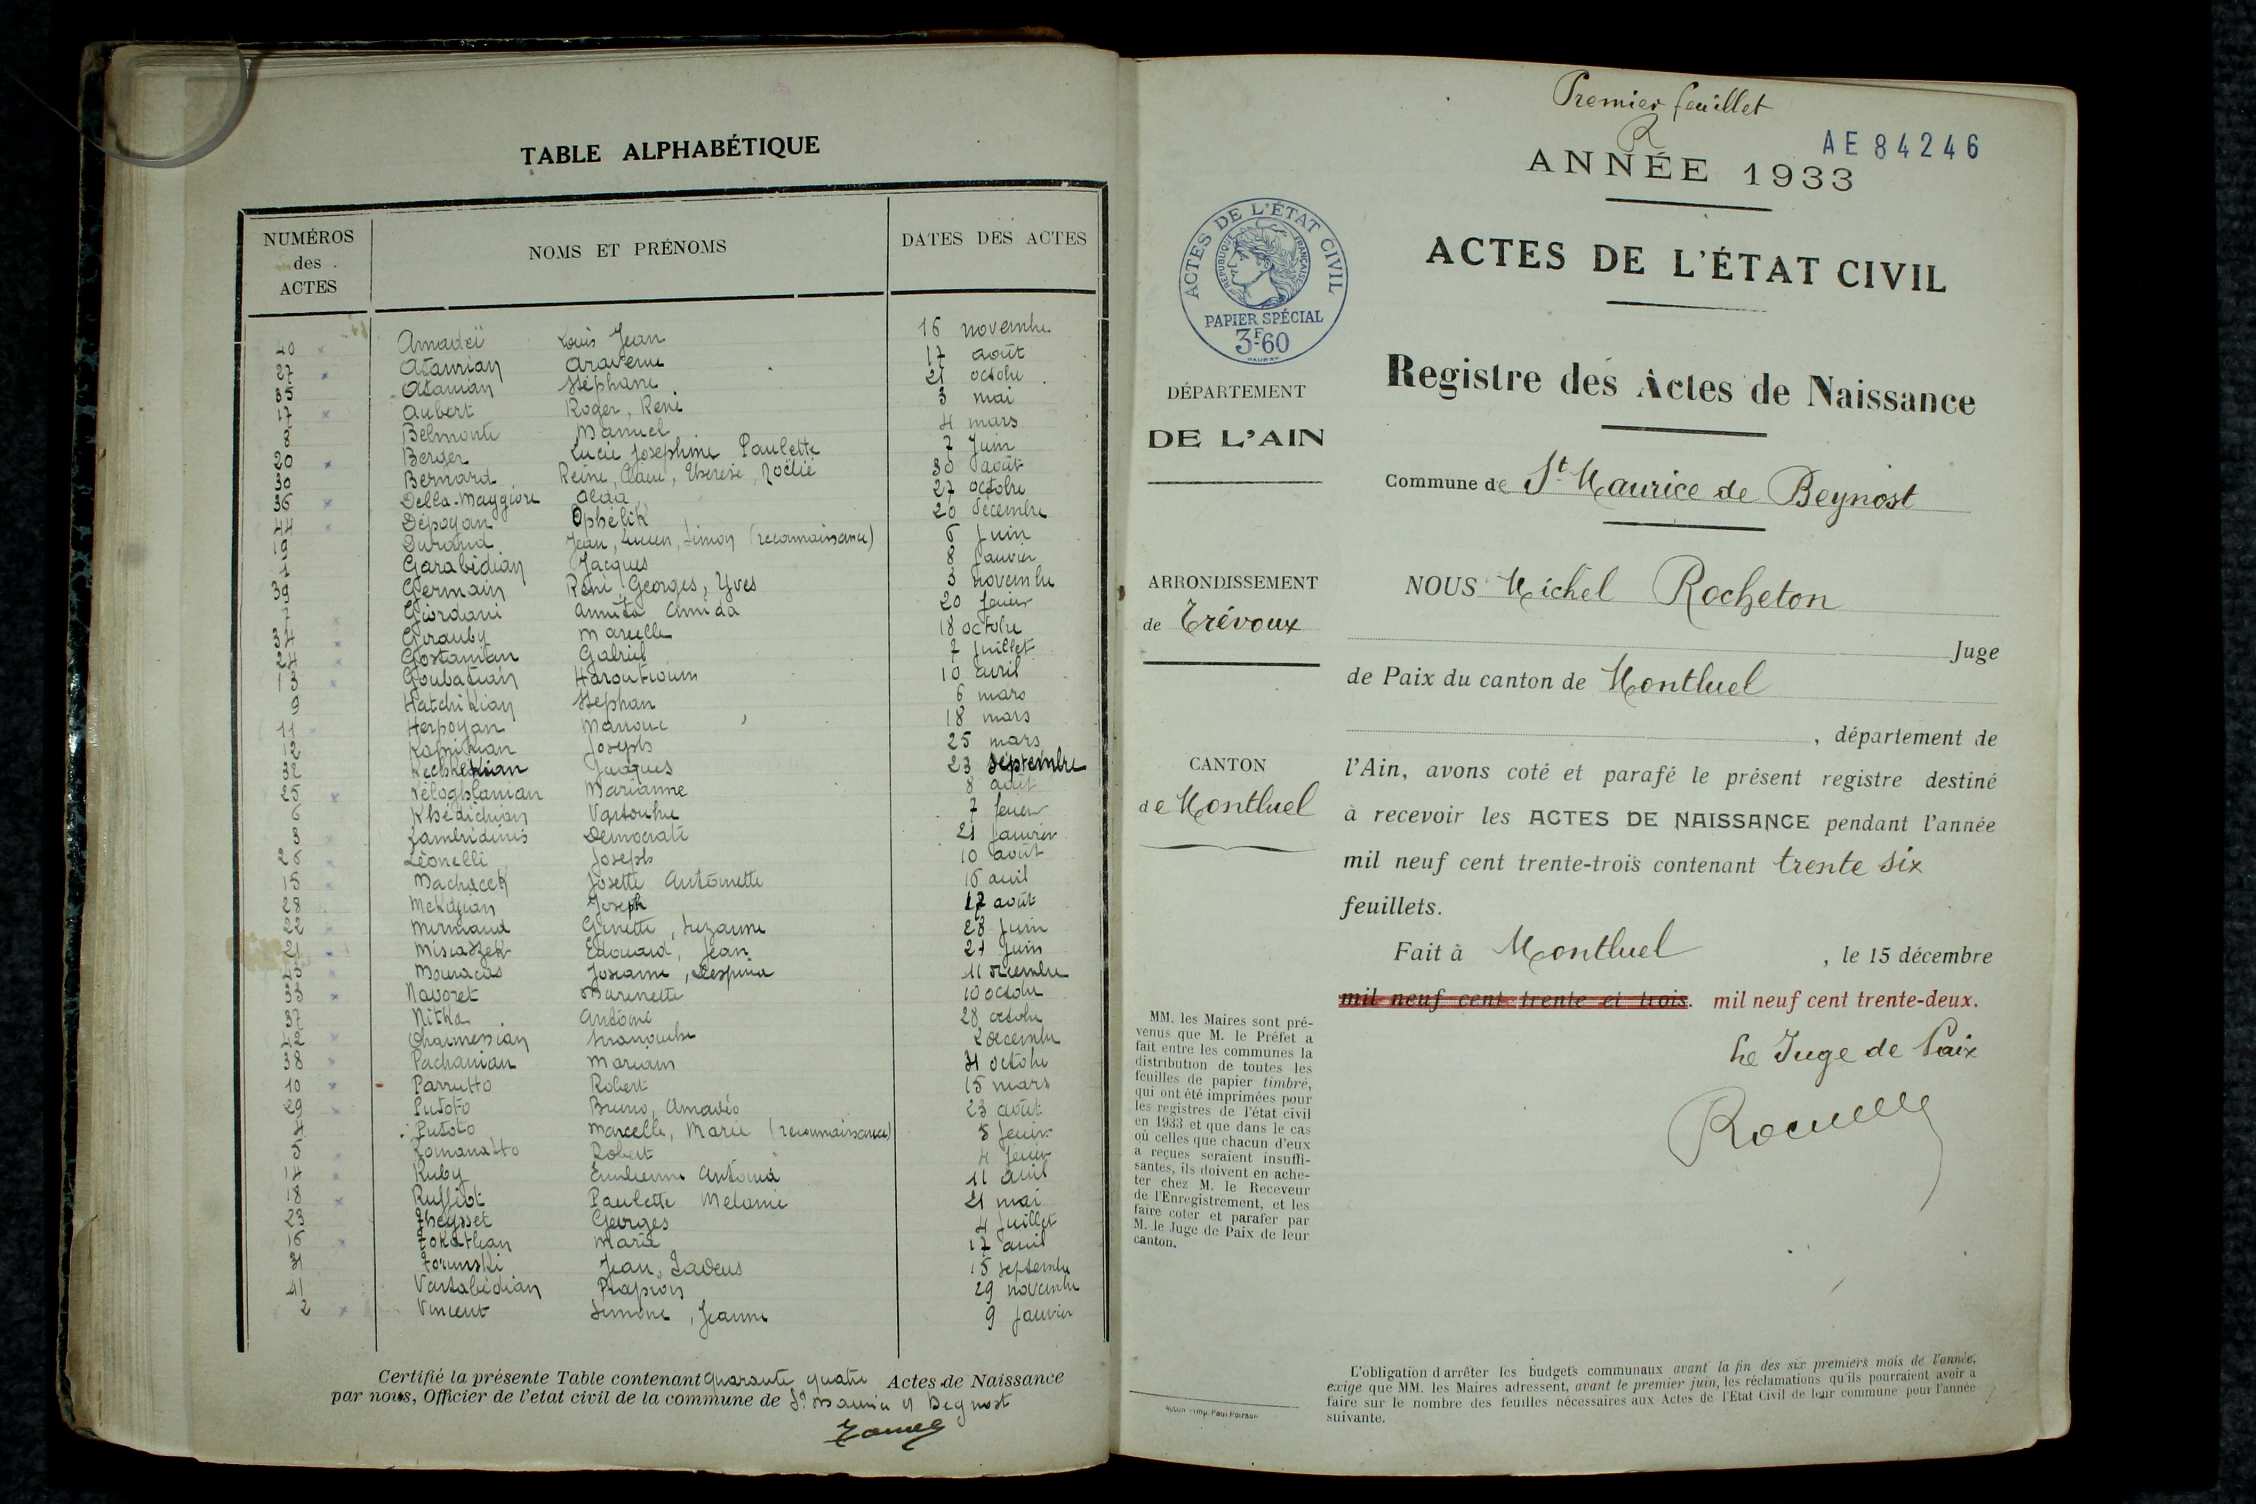 TABLE ALPHABÉTIQUE
NUMÉROS des ACTES
NOMS ET PRÉNOMS
DATES DES ACTES
40 Amadeï Louis Jean 16 novembre
27 Atamian Aravenie 17 août
35 Atamian Stéphane 21 octobre
17 Aubert Roger, René 3 mai
8 Belmonte Manuel 4 mars
20 Berger Lucie Joséphine Paulette 7 Juin
30 Bernard Reine, Thérèse, Noëlie 30 août
36 Della-Maggiore Alda 27 octobre
44 Dépoyan Ophélik 20 décembre
19 Durand Jean, Lucien, Simon (reconnaissance) 6 Juin
1 Garabédian Jacques 8 Janvier
39 Germain René, Georges, Yves 3 novembre
7 Giordani Annita Armida 20 fevrier
34 Girauby Marcelle 18 octobre
24 Gostanian Gabriel 7 Juillet
13 Goubatian Haroutioum 10 avril
9 Hatchikian Stephan 6 mars
11 Herpoyan Manouc 18 mars
12 Kaprikian Joseph 25 mars
32 Kechekian Jacques 23 septembre
25 Marianne 8 août
6 Khédichian Vartouhie 7 fevrier
3 Lambridinis Démocrati 21 Janvier
26 Léonelli Joseph 10 août
15 Machacek Josette Antoinette 16 avril
28 Mckdjian Joseph 17 août
22 Mermand Ginette, Suzanne 28 Juin
21 Misiaszek Edouard, Jean 21 Juin
43 Mouracas Josianne, Despina 11 décembre
33 Navoret Marinette 10 octobre
37 Nitka Antoine 28 octobre
42 Ohannessian 2 décembre
38 Pachanian Mariam 31 octobre
10 Parrutto Robert 15 mars
29 Putoto Bruno, Amadéo 23 août
4 Putoto Marcelle, Marie (reconnaissance) 3 fevrier
5 Romanatto Robert 4 fevrier
14 Ruby Emilienne Antonia 11 avril
18 Ruffiot Paulette Mélanie 21 mai
23 Theysset Georges 4 Juillet
16 Tokatlian Maria 17 avril
31 Torunski Jean, Tadeus 15 septembre
41 Vartabédian Prapion 29 novembre
2 Vincent Simone, Jeanne 9 Janvier
Certifié la présente Table contenant quarante quatre Actes de Naissance
par nous, Officier de l'etat civil de la commune de St Maurice d Beynost
Premier feuillet
R
AE 84246
ANNÉE 1933
ACTES DE L'ÉTAT CIVIL
RÉPUBLIQUE FRANÇAISE
PAPIER SPÉCIAL
3F60
ACTES DE L'ÉTAT CIVIL
Registre des Actes de Naissance
DÉPARTEMENT
DE L'AIN
Commune de St Maurice de Beynost
ARRONDISSEMENT
de Trévoux
NOUS Michel Rocheton
Juge
de Paix du canton de Montluel
, département de
CANTON
de Montluel
l'Ain, avons coté et parafé le présent registre destiné
à recevoir les ACTES DE NAISSANCE pendant l'année
mil neuf cent trente-trois contenant trente six
feuillets.
Fait à Montluel, le 15 décembre
mil neuf cent trente et trois. mil neuf cent trente-deux.
Le Juge de Paix
MM. les Maires sont pré-
venus que M. le Préfet a
fait entre les communes la
distribution de toutes les
feuilles de papier timbré,
qui ont été imprimées pour
les registres de l'état civil
en 1933 et que dans le cas
où celles que chacun d'eux
a reçues seraient insuffi-
santes, ils doivent en ache-
ter chez M. le Receveur
de l'Enregistrement, et les
faire coter et parafer par
M. le Juge de Paix de leur
canton.
L'obligation d'arrêter les budgets communaux avant la fin des six premiers mois de l'année,
exige que MM. les Maires adressent, avant le premier juin, les réclamations qu'ils pourraient avoir à
faire sur le nombre des feuilles nécessaires aux Actes de l'Etat Civil de leur commune pour l'année
suivante.